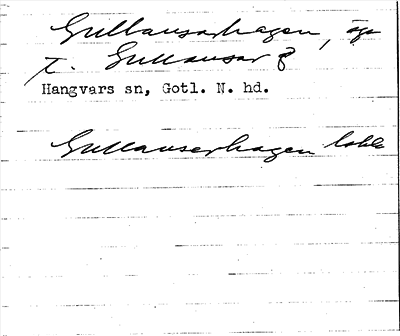 Gullausarhagen, äga
t. Gullausar 8
Hangvars sn, Gotl. N. hd.
Gullauserhagen